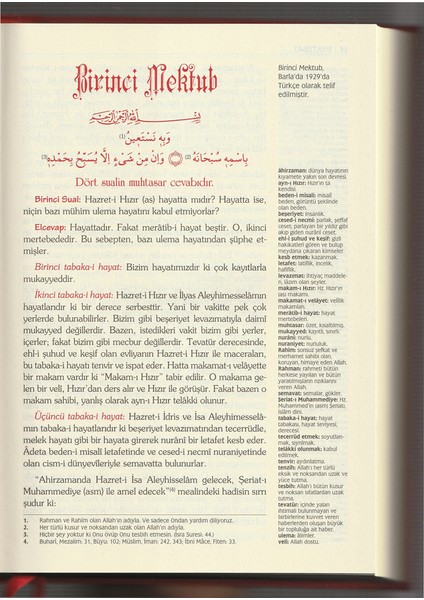 Birinci Mektub
بِسْمِ اللّٰهِ الرَّحْمٰنِ الرَّحِيمِ
وَبِهِ نَسْتَعِينُ (1)
بِاسْمِهِ سُبْحَانَهُ (2) وَاِنْ مِنْ شَىْءٍ اِلَّا يُسَبِّحُ بِحَمْدِهِ (3)
Dört sualin muhtasar cevabıdır.
Birinci Sual: Hazret-i Hızır (as) hayatta mıdır? Hayatta ise,
niçin bazı mühim ulema hayatını kabul etmiyorlar?
Elcevap: Hayattadır. Fakat merâtib-i hayat beştir. O, ikinci
mertebededir. Bu sebepten, bazı ulema hayatından şüphe et-
mişler.
Birinci tabaka-i hayat: Bizim hayatımızdır ki çok kayıtlarla
mukayyeddir.
İkinci tabaka-i hayat: Hazret-i Hızır ve İlyas Aleyhimesselâmın
hayatlarıdır ki bir derece serbesttir. Yani bir vakitte pek çok
yerlerde bulunabilirler. Bizim gibi beşeriyet levazımatıyla daimî
mukayyed değillerdir. Bazen, istedikleri vakit bizim gibi yerler,
içerler; fakat bizim gibi mecbur değillerdir. Tevatür derecesinde,
ehl-i şuhud ve keşif olan evliyanın Hazret-i Hızır ile maceraları,
bu tabaka-i hayatı tenvir ve ispat eder. Hatta makamat-ı velâyette
bir makam vardır ki "Makam-ı Hızır" tabir edilir. O makama ge-
len bir velî, Hızır'dan ders alır ve Hızır ile görüşür. Fakat bazen o
makam sahibi, yanlış olarak ayn-ı Hızır telâkki olunur.
Üçüncü tabaka-i hayat: Hazret-i İdris ve İsa Aleyhimesselâ-
mın tabaka-i hayatlarıdır ki beşeriyet levazımatından tecerrüdle,
melek hayatı gibi bir hayata girerek nuranî bir letafet kesb eder.
Âdeta beden-i misalî letafetinde ve cesed-i necmî nuraniyetinde
olan cism-i dünyevîleriyle semavatta bulunurlar.
"Ahirzamanda Hazret-i İsa Aleyhisselâm gelecek, Şeriat-ı
Muhammediye (asm) ile amel edecek"(4) mealindeki hadisin sırrı
şudur ki:
1. Rahman ve Rahîm olan Allah'ın adıyla. Ve sadece Ondan yardım diliyoruz.
2. Her türlü kusur ve noksandan uzak olan Allah'ın adıyla.
3. Hiçbir şey yoktur ki Onu övüp Onu tesbih etmesin. (İsra Suresi: 44.)
4. Buharî, Mezalim: 31, Büyu: 102; Müslim, İman: 242, 343; İbni Mâce, Fiten: 33.
Birinci Mektub,
Barla'da 1929'da
Türkçe olarak telif
edilmiştir.
âhirzaman: dünya hayatının
kıyamete yakın son devresi.
ayn-ı Hızır: Hızır'ın ta
kendisi.
beden-i misalî: misalî
beden, görüntü şeklinde
olan beden.
beşeriyet: insanlık.
cesed-i necmî: parlak, şeffaf
ceset, parlayan bir yıldız gibi
akıp giden nuranî ceset.
ehl-i şuhud ve keşif: gizli
hakikatleri gören ve bulup
meydana çıkaran kimseler
kesb etmek: kazanmak.
letafet: latiflik, incelik,
hafiflik.
levazımat: ihtiyaç maddele-
ri, lâzım olan şeyler.
makam-ı Hızır: Hz. Hızır'ın
has makamı.
makamat-ı velâyet: velîlik
makamları.
merâtib-i hayat: hayat
mertebeleri.
muhtasar: özet, kısaltılmış.
mukayyed: kayıtlı, sınırlı.
nuranî: nurlu.
nuraniyet: nurluluk.
Rahîm: sonsuz şefkat ve
merhamet sahibi olan,
koruyan, himaye eden Allah.
Rahman: rahmeti bütün
herkese yayılan ve bütün
yaratılmışların rızıklarını
veren Allah.
semavat: semalar, gökler.
Şeriat-ı Muhammediye: Hz.
Muhammed'in (asm) Şeriatı,
İslâm dini.
tabaka-i hayat: hayat
tabakası, hayat seviyesi,
derecesi.
tecerrüd etmek: soyutlan-
mak, sıyrılmak.
telâkki olunmak: kabul
edilmek.
tenvir: aydınlatma.
tenzih: Allah'ı her türlü
eksik ve noksandan uzak ve
yüce tutma.
tesbih: Allah'ı bütün kusur
ve noksan sıfatlardan uzak
tutma.
tevatür: içinde yalan
ihtimali bulunmayan ve
birbirlerine kuvvet veren
haberlerden oluşan büyük
bir topluluğa ait haber.
ulema: âlimler.
velî: Allah dostu.